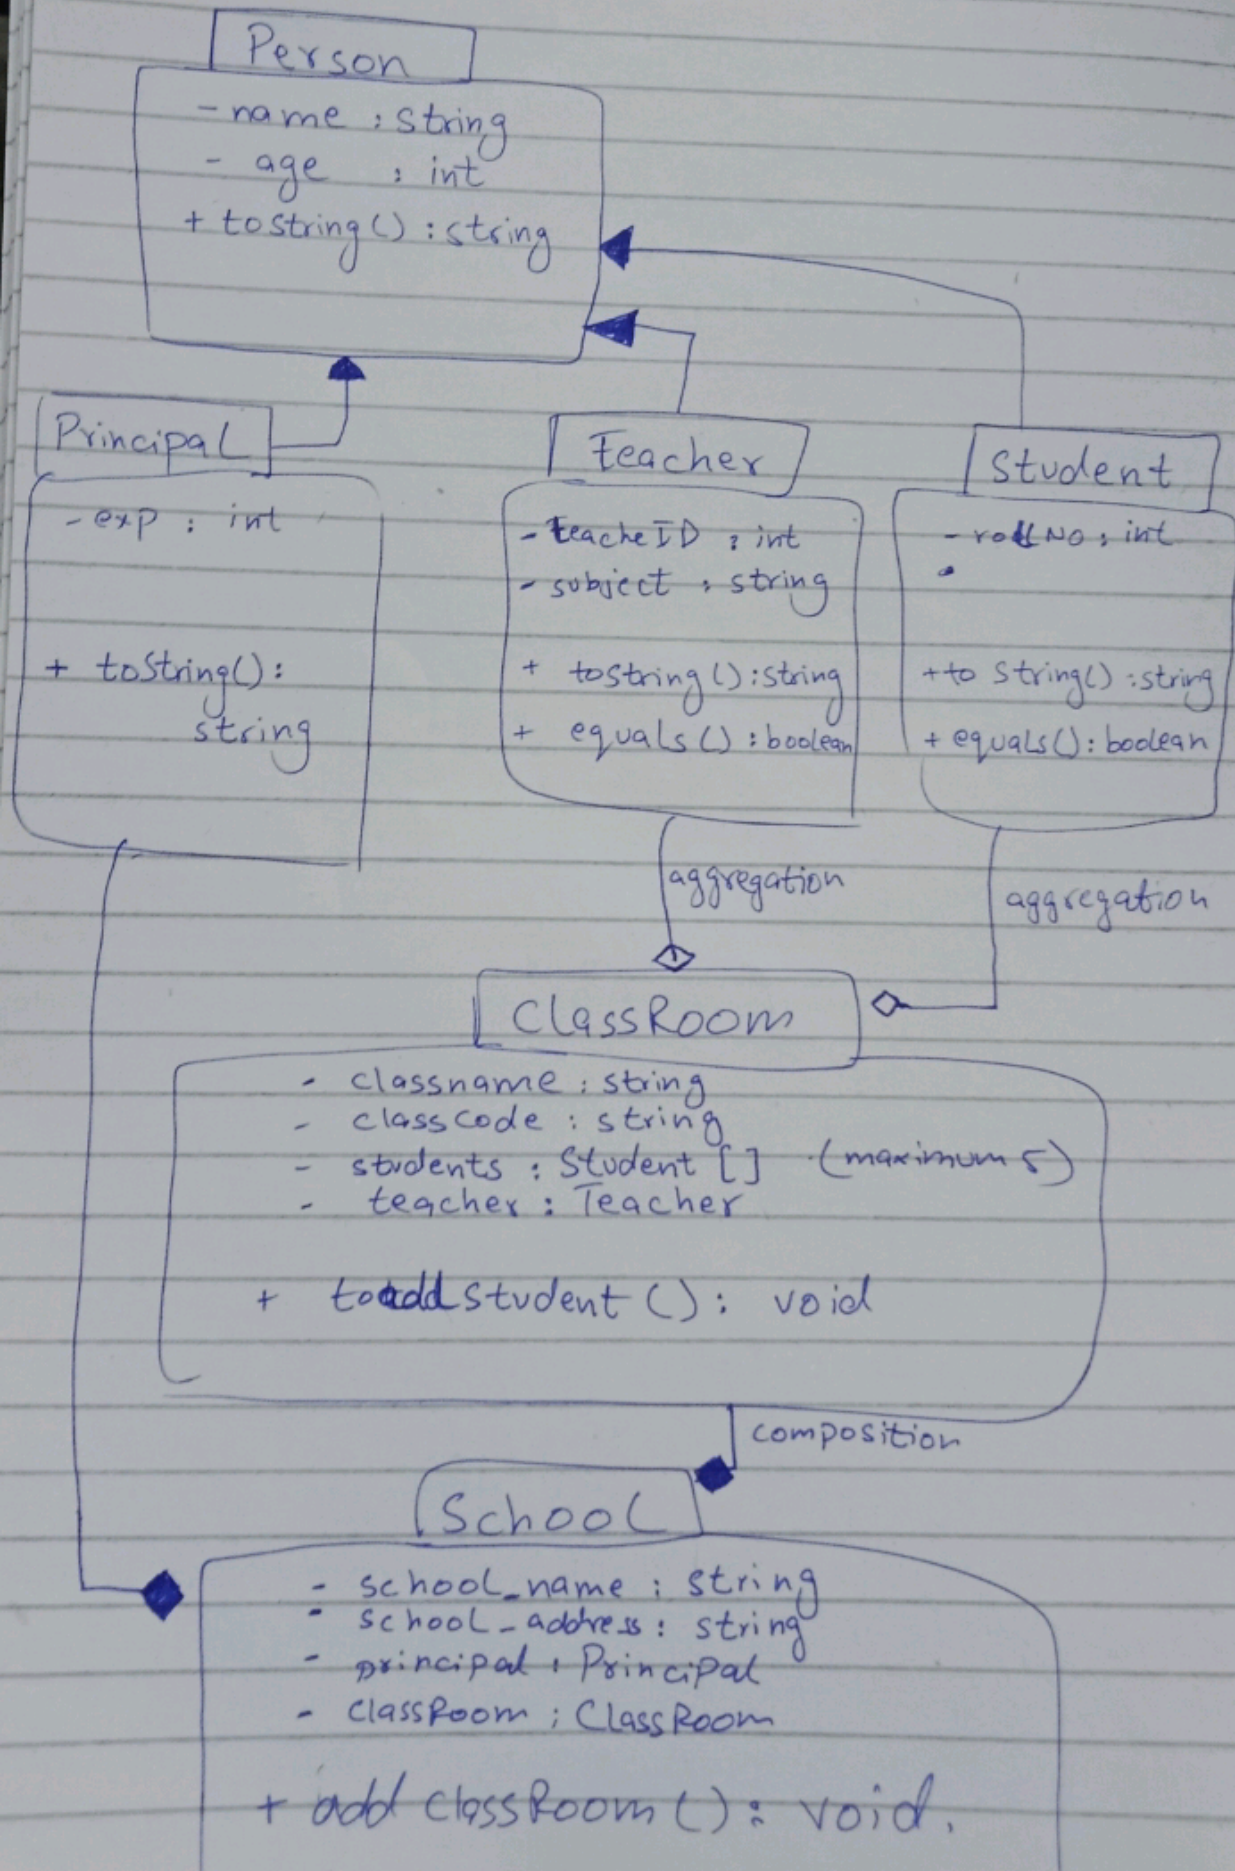 Person
- name : string
- age : int
+ tostring() : string
Principal
- exp : int
+ toString():
string
Teacher
- teacheID : int
- subject : string
+ tostring() : string
+ equals() : boolean
Student
- rollNo : int
+ to string() : string
+ equals() : boolean
aggregation
aggregation
ClassRoom
- classname : string
- classcode : string
- students : Student [] (maximum 5)
- teacher : Teacher
+ toaddstudent () : void
composition
School
- school_name : string
- school_address : string
- principal : Principal
- classRoom : ClassRoom
+ add classRoom () : void.